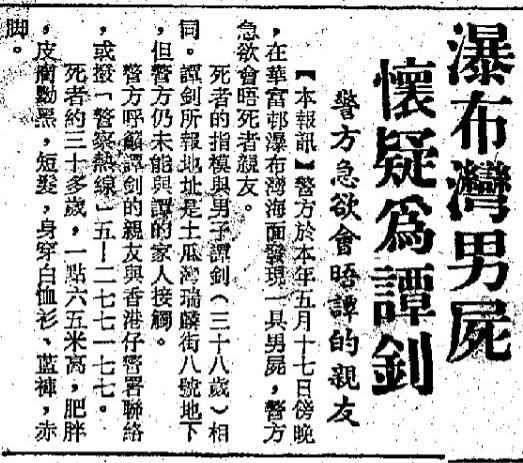 瀑布灣男屍
懷疑為譚釗
警方急欲會晤譚的親友
【本報訊】警方於本年五月十七日傍晚
,在華富邨瀑布灣海面發現一具男屍,警方
急欲會晤死者親友。
死者的指模與男子譚釗(三十八歲)相
同。譚釗所報地址是土瓜灣瑞麟街八號地下
,但警方仍未能與譚的家人接觸。
警方呼籲譚釗的親友與香港仔警署聯絡
,或撥「警察熱線」五—二七七一七七。
死者約三十多歲,一點六五米高,肥胖
,皮膚黝黑,短髮,身穿白恤衫、藍褲,赤
脚。